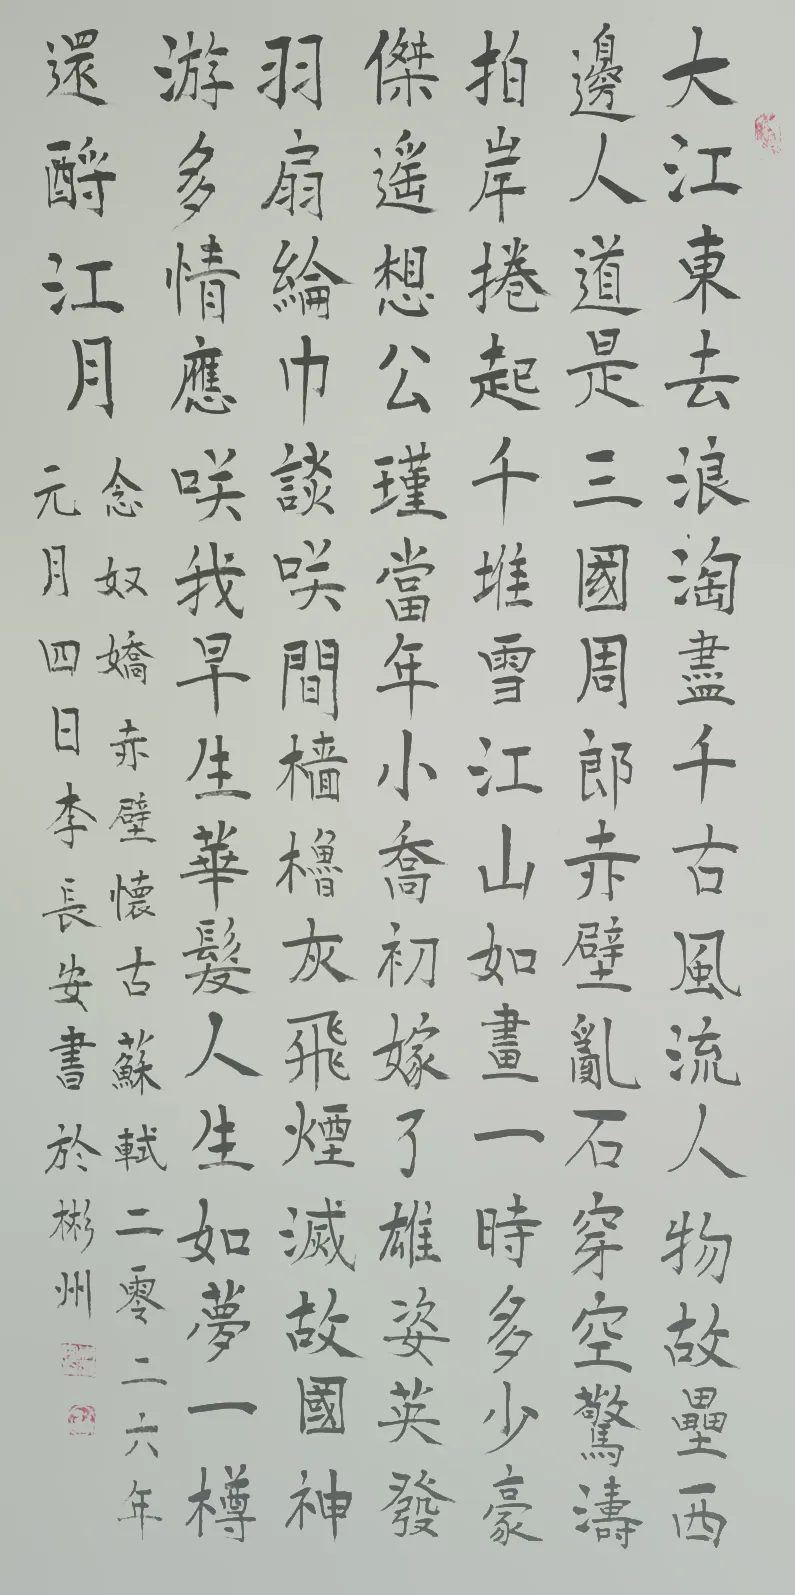 大江東去浪淘盡千古風流人物故壘西
邊人道是三國周郎赤壁亂石穿空驚濤
拍岸捲起千堆雪江山如畫一時多少豪
傑遥想公瑾當年小喬初嫁了雄姿英發
羽扇綸巾談咲間檣櫓灰飛煙滅故國神
游多情應咲我早生華髮人生如夢一樽
還酹江月
念奴嬌赤壁懷古蘇軾二零二六年
元月四日李長安書於彬州